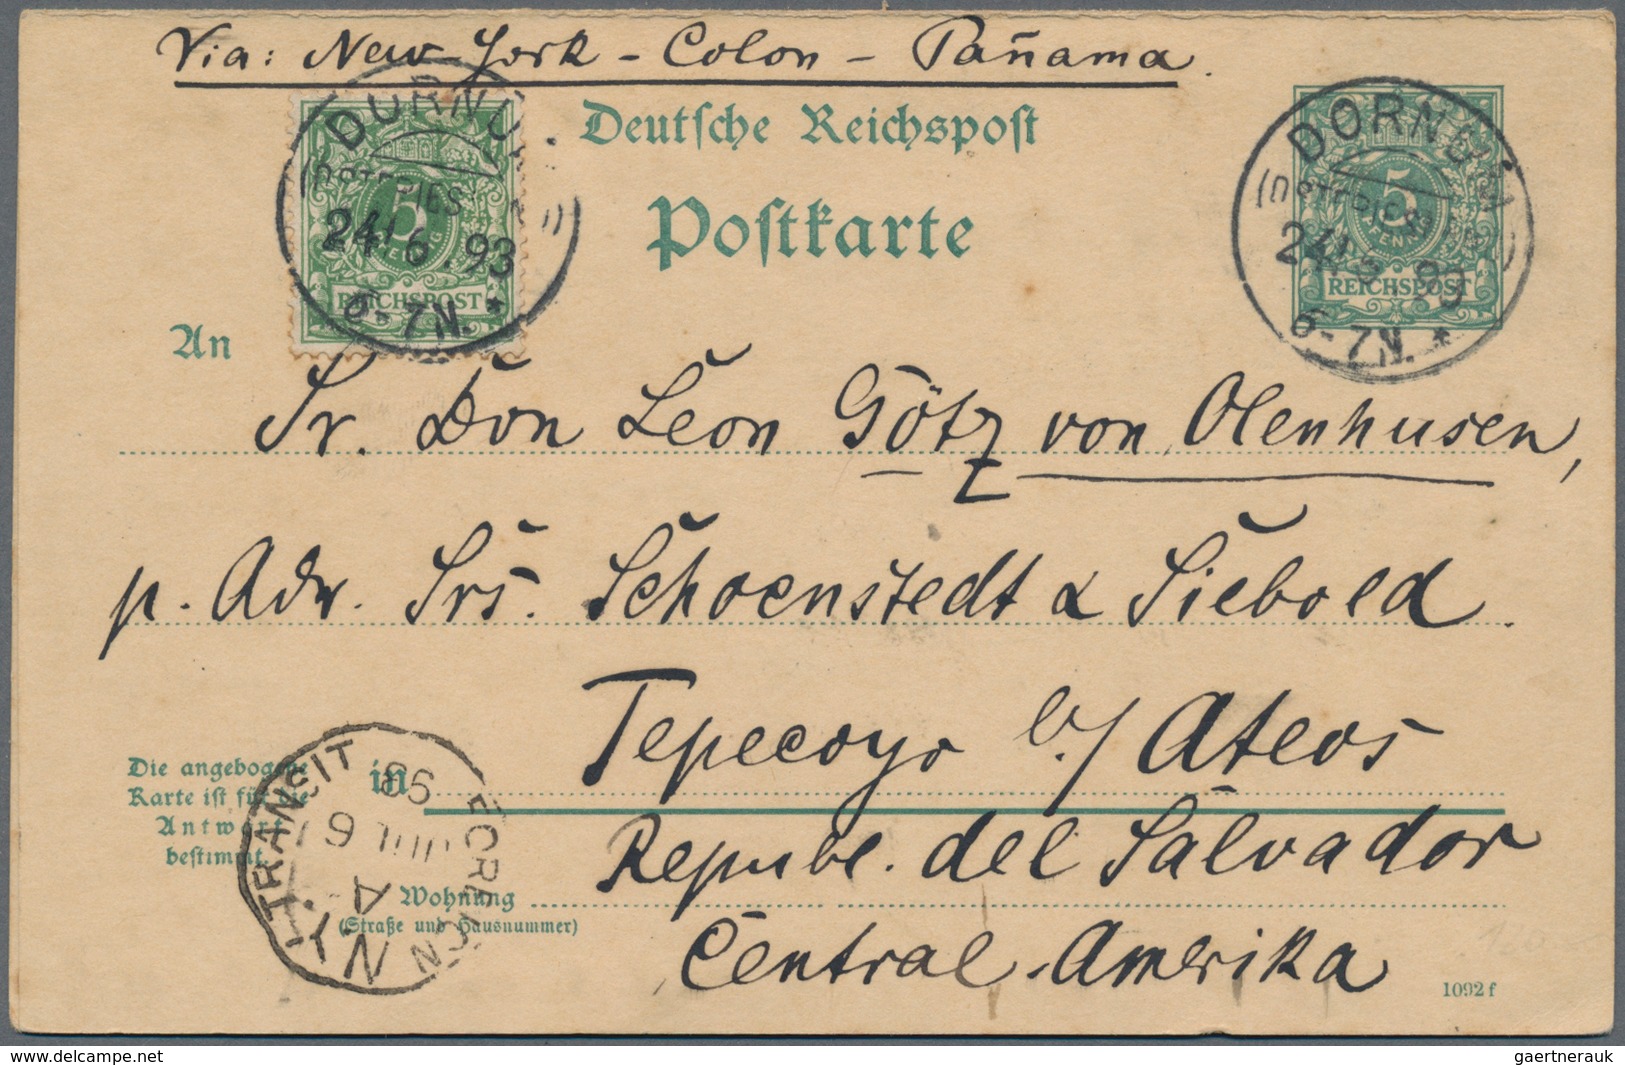 Via: New-York - Colon - Pañama.
Deutsche Reichspost
Postkarte
DORNU
24/6.93
6-7N. *
5
REICHSPOST
DORNUM
(OSTFRIESLAND)
24/6.93
6-7N. *
5
PFENNIG
REICHSPOST
An
Sr. Don Leon Götz von Olenhusen,
p. Adr. Srs. Schoenstedt & Siebold.
in Tepecoyo b/ Ateos
Republ. del Salvador
Central-Amerika
Die angebogene
Karte ist für die
Antwort
bestimmt.
Wohnung
(Straße und Hausnummer)
N.Y. FOREIGN TRANSIT
A
JUL 6
93
1092 f
www.delcampe.net
gaertnerauk